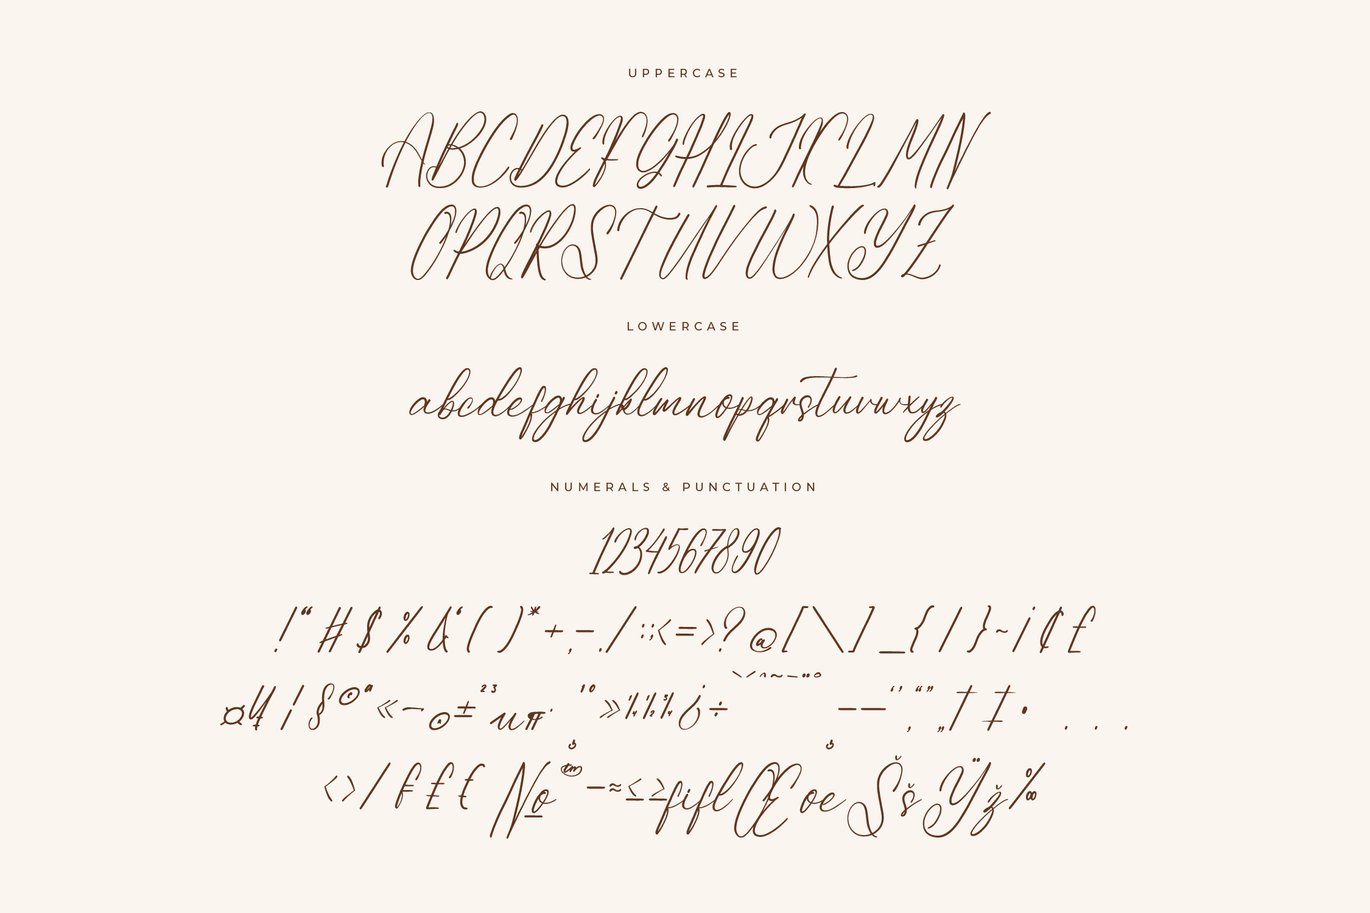 UPPERCASE
ABCDEFGHIJKLMN
OPQRSTUVWXYZ
LOWERCASE
abcdefghijklmnopqrstuvwxyz
NUMERALS & PUNCTUATION
1234567890
!“#$%&‘()*+,-./:;<=>?@[\]_{|}~¡¢£
¤¥¦§©ª«¬®±²³µ¶·¸¹º»¼½¾¿÷–—‘’‚“”„†‡•…
‹›⁄₣₤€№™−≈≤≥fiflŒœŠšŸž‰